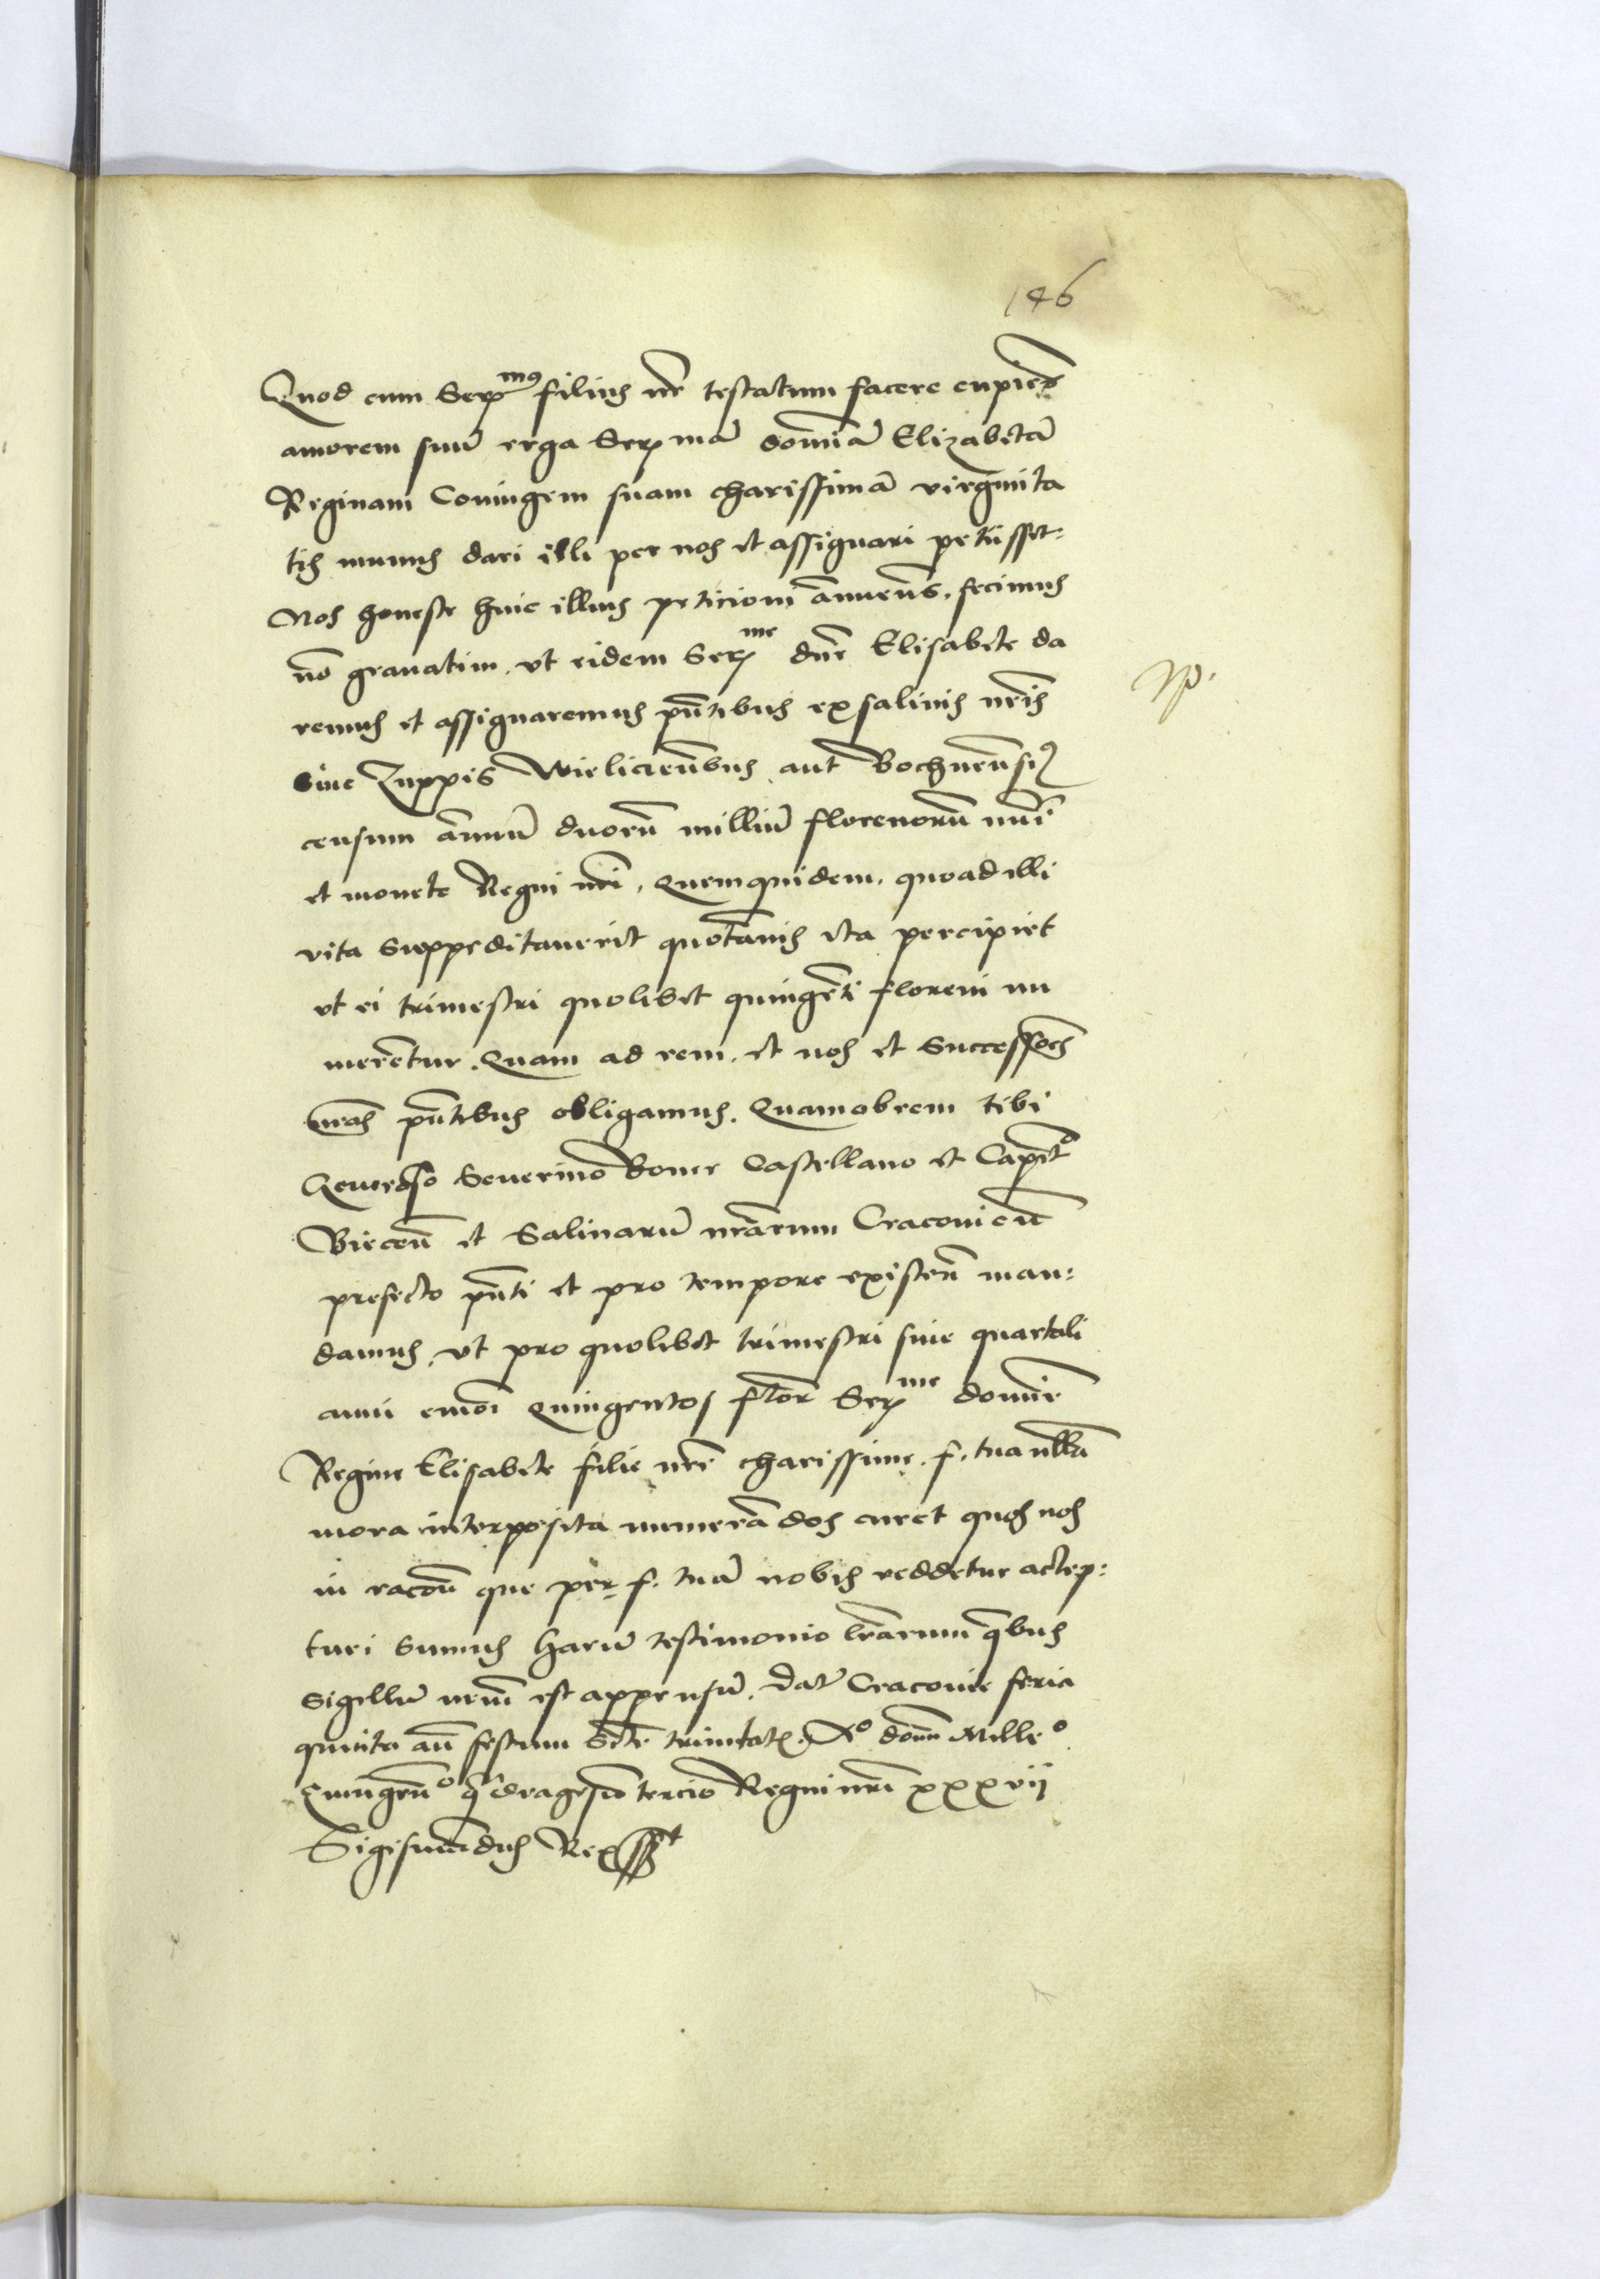 146
Quod cum Ser^mus filius nr̄ testatum facere cupiēs
amorem suū erga Ser^mā domīā Elizabetā
Reginam Coniugem suam charissimā virginita
tis munus dari illi per nos et assignari petiisset:
Nos honeste huic illius peticioni ānuentēs, fecimus
nō grauatim, vt eidem Ser^me dn̄e Elisabete da
remus et assignaremus pn̄tibus ex salinis nr̄is
siue Zuppis Wieliciēn̄bus aut Bochnen̄siꝫ
censum ānuū duorū milliū florenorū nūi
et monete Regni nr̄i, Quem quidem, quoad illi
vita suppeditauerit quotānis ita percipiet
vt ei trimestri quolibet quingēti floreni nu
merētur. Quam ad rem, et nos et Successōēs
nr̄os pn̄tibus obligamus. Quamobrem tibi
Generoso Seuerino Boner Castellano et Capit^o
Biecen̄ et Salinarū nr̄arum Cracouien̄
prefecto pn̄ti et pro tempore existen̄ man:
damus, vt pro quolibet trimestri siue quartali
anni quingentos flor̄ Ser^me domīe
Regine Elisabete filie nr̄e charissime, f. tua ullā
mora interposita numerādos curet quos nos
in racōn̄ que per f. tuā nobis reddetur accep:
turi sumus harū testimonio lr̄arum q̄bus
Sigillū nr̄m est appensū. Dat̄ Cracouie feria
quinta an̄ festum Sc̄te trinitatꝭ. A^o domī Mille^o
Quingen̄^o q̄dragesīo tercio Regni nr̄i xxxvij
Sigismūdus Rex sst